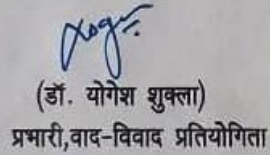 (डॉ. योगेश शुक्ला)
प्रभारी,वाद-विवाद प्रतियोगिता